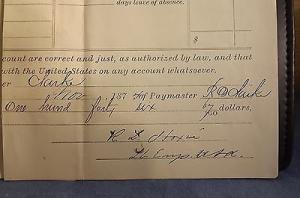 days leave of absence.
count are correct and just, as authorized by law, and that
with the United States on any account whatsoever.
er Clarke
187 of Paymaster R D Clarke
One hund forty six 67/100 dollars,
R. L. Hoxie
Lt Engs. U.S.A.